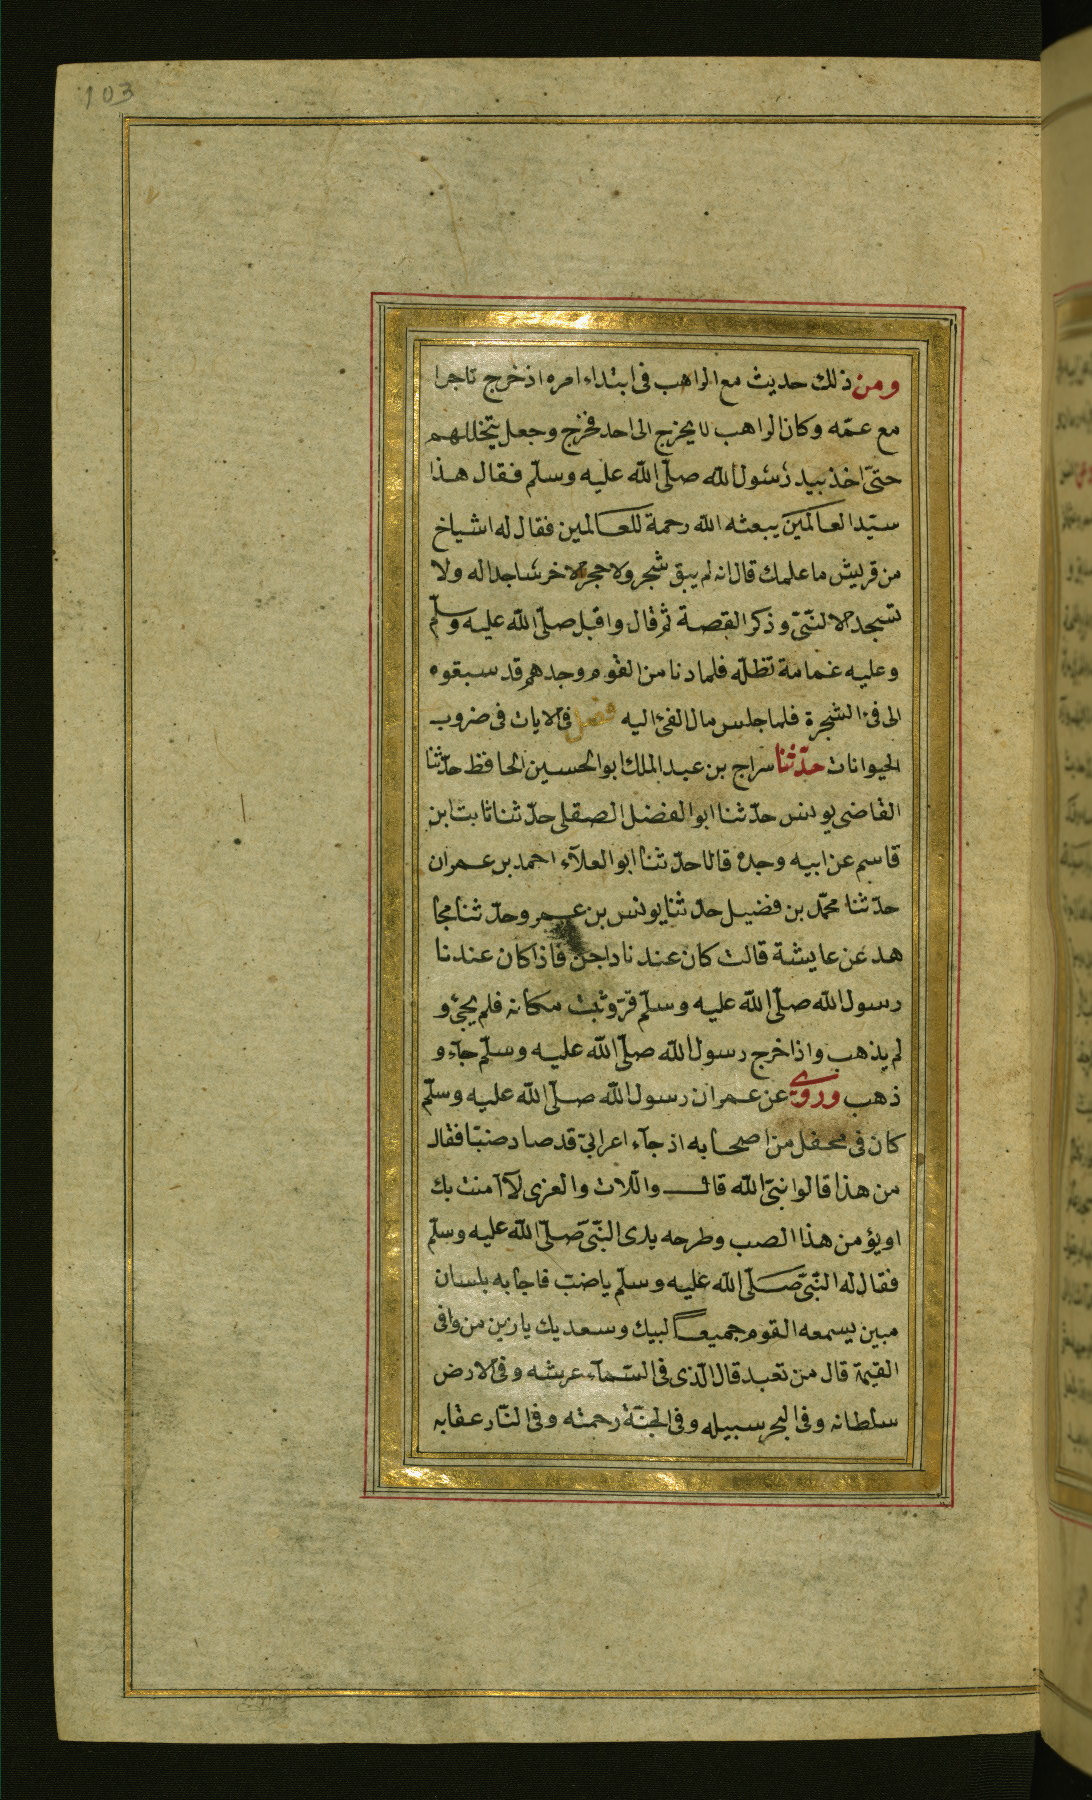 103
ومن ذلك حديث مع الراهب فى ابتداء امره اذ خرج تاجرا
مع عمّه وكان الراهب لا يخرج الى احد فخرج وجعل يتخللهم
حتىّ اخذ بيد رسول الله صلّى الله عليه وسلّم فقال هذا
سيّد العالمين يبعثه الله رحمة للعالمين فقال له اشياخ
من قريش ما علمك قال انه لم يبق شجر ولا حجر الا خر ساجدا له ولا
تسجد الا لنّبىّ وذكر القصة ثم قال واقبل صلّى الله عليه وسلّم
وعليه غمامة تظلّه فلما دنا من القوم وجدهم قد سبقوه
الى فئ الشجرة فلما جلس مال الفئ اليه فصل فى الايات فى ضروب
الحيوانات حدّثنا سراج بن عبد الملك ابو الحسين الحافظ حدّثنا
القاضى يونس حدّثنا ابو الفضل الصقلى حدّثنا ثابت ابن
قاسم عن ابيه وجده قالا حدّثنا ابو العلآء احمد بن عمران
حدّثنا محمّد بن فضيل حدّثنا يونس بن عمرو حدّثنا مجا
هد عن عايشة قالت كان عندنا داجن فاذا كان عندنا
رسول الله صلّى الله عليه وسلّم قرّ وثبت مكانه فلم يجئ و
لم يذهب واذا خرج رسول الله صلّى الله عليه وسلّم جآء و
ذهب وروى عن عمر ان رسول الله صلّى الله عليه وسلّم
كان فى محفل من اصحابه اذ جآء اعرابىّ قد صاد ضبّا فقال
من هذا قالوا نبىّ الله قال واللات والعزى لا آمنت بك
او يؤمن هذا الضب وطرحه يدى النّبىّ صلّى الله عليه وسلّم
فقال له النّبىّ صلّى الله عليه وسلّم يا ضبّ فاجابه بلسان
مبين يسمعه القوم جميعا لبيك وسعديك يا زين من وافى
القيمة قال من تعبد قال الّذى فى السّمآء عرشه وفى الارض
سلطانه وفى البحر سبيله وفى الجنّة رحمته وفى النّار عقابه